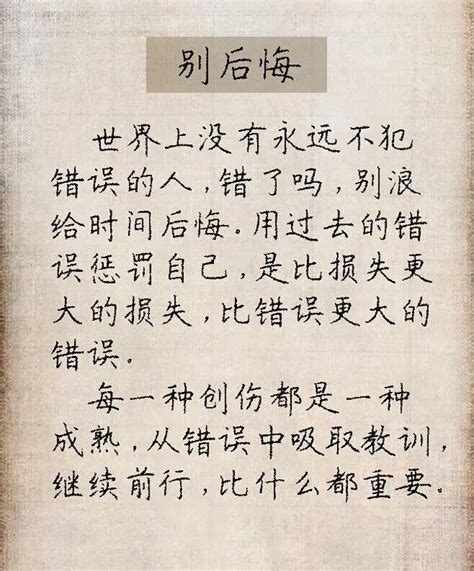 别后悔
世界上没有永远不犯
错误的人，错了吗，别浪
给时间后悔。用过去的错
误惩罚自己，是比损失更
大的损失，比错误更大的
错误。
每一种创伤都是一种
成熟，从错误中吸取教训，
继续前行，比什么都重要。